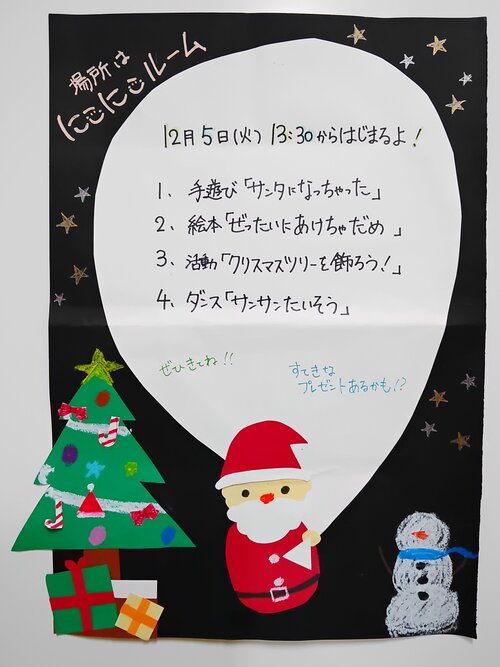 場所は
にこにこルーム
12月5日(火) 13:30からはじまるよ!
1、手遊び「サンタになっちゃった」
2、絵本「ぜったいにあけちゃだめ」
3、活動「クリスマスツリーを飾ろう!」
4、ダンス「サンサンたいそう」
ぜひきてね!!
すてきな
プレゼントあるかも!?